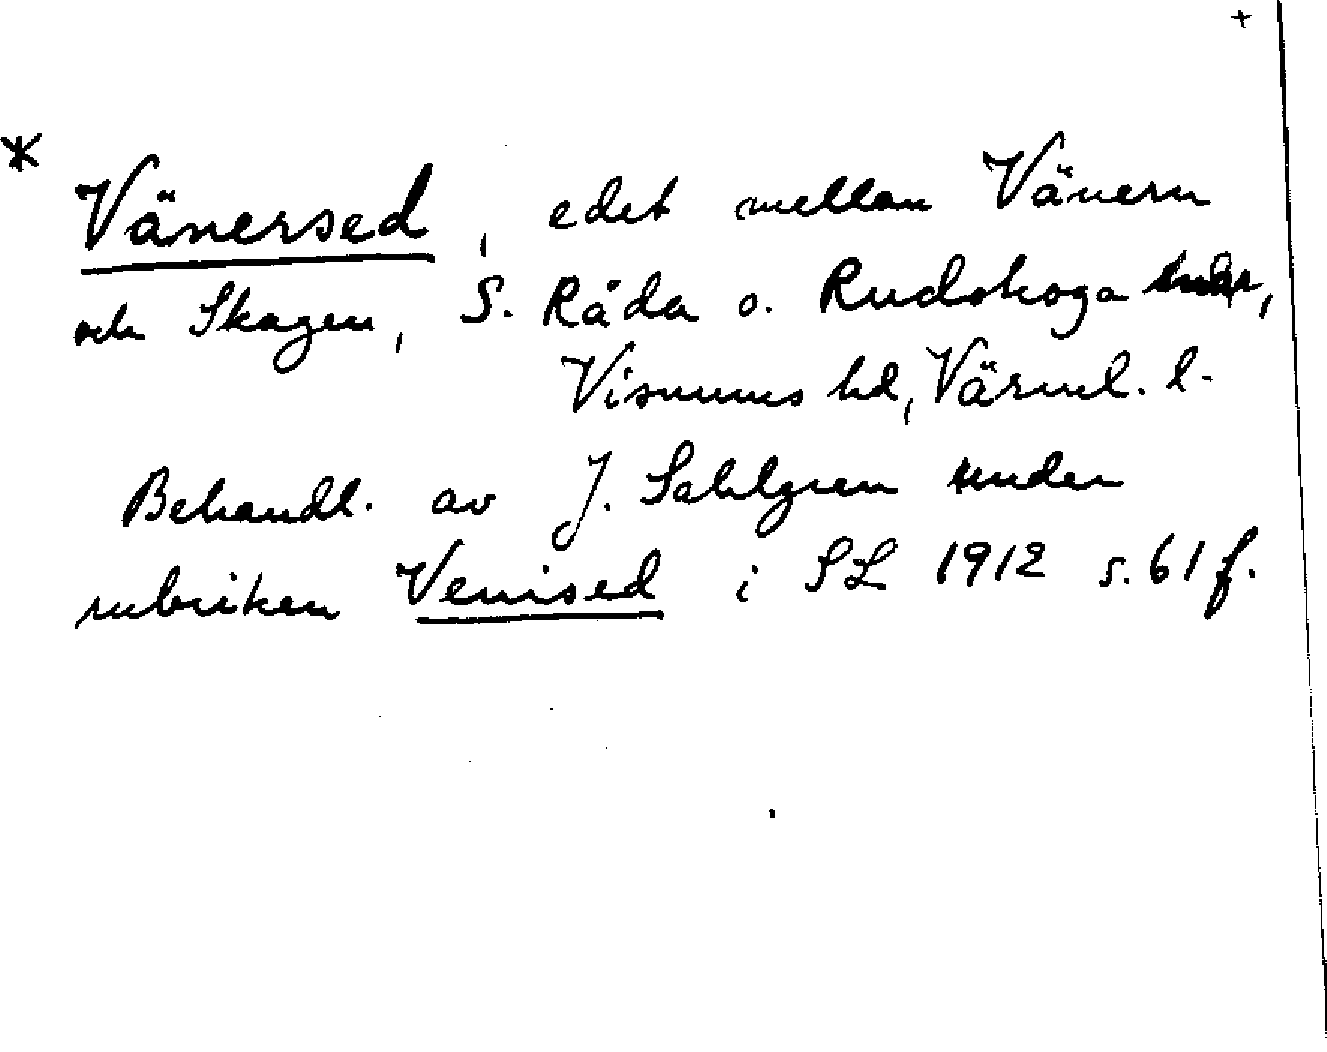 +
* Vänersed, edet mellan Vänern
och Skagen, S. Råda o. Rudskoga snr,
Visnums hd, Värml. l.
Behandl. av J. Sahlgren under
rubriken Venised i SL 1912 s. 61 f.